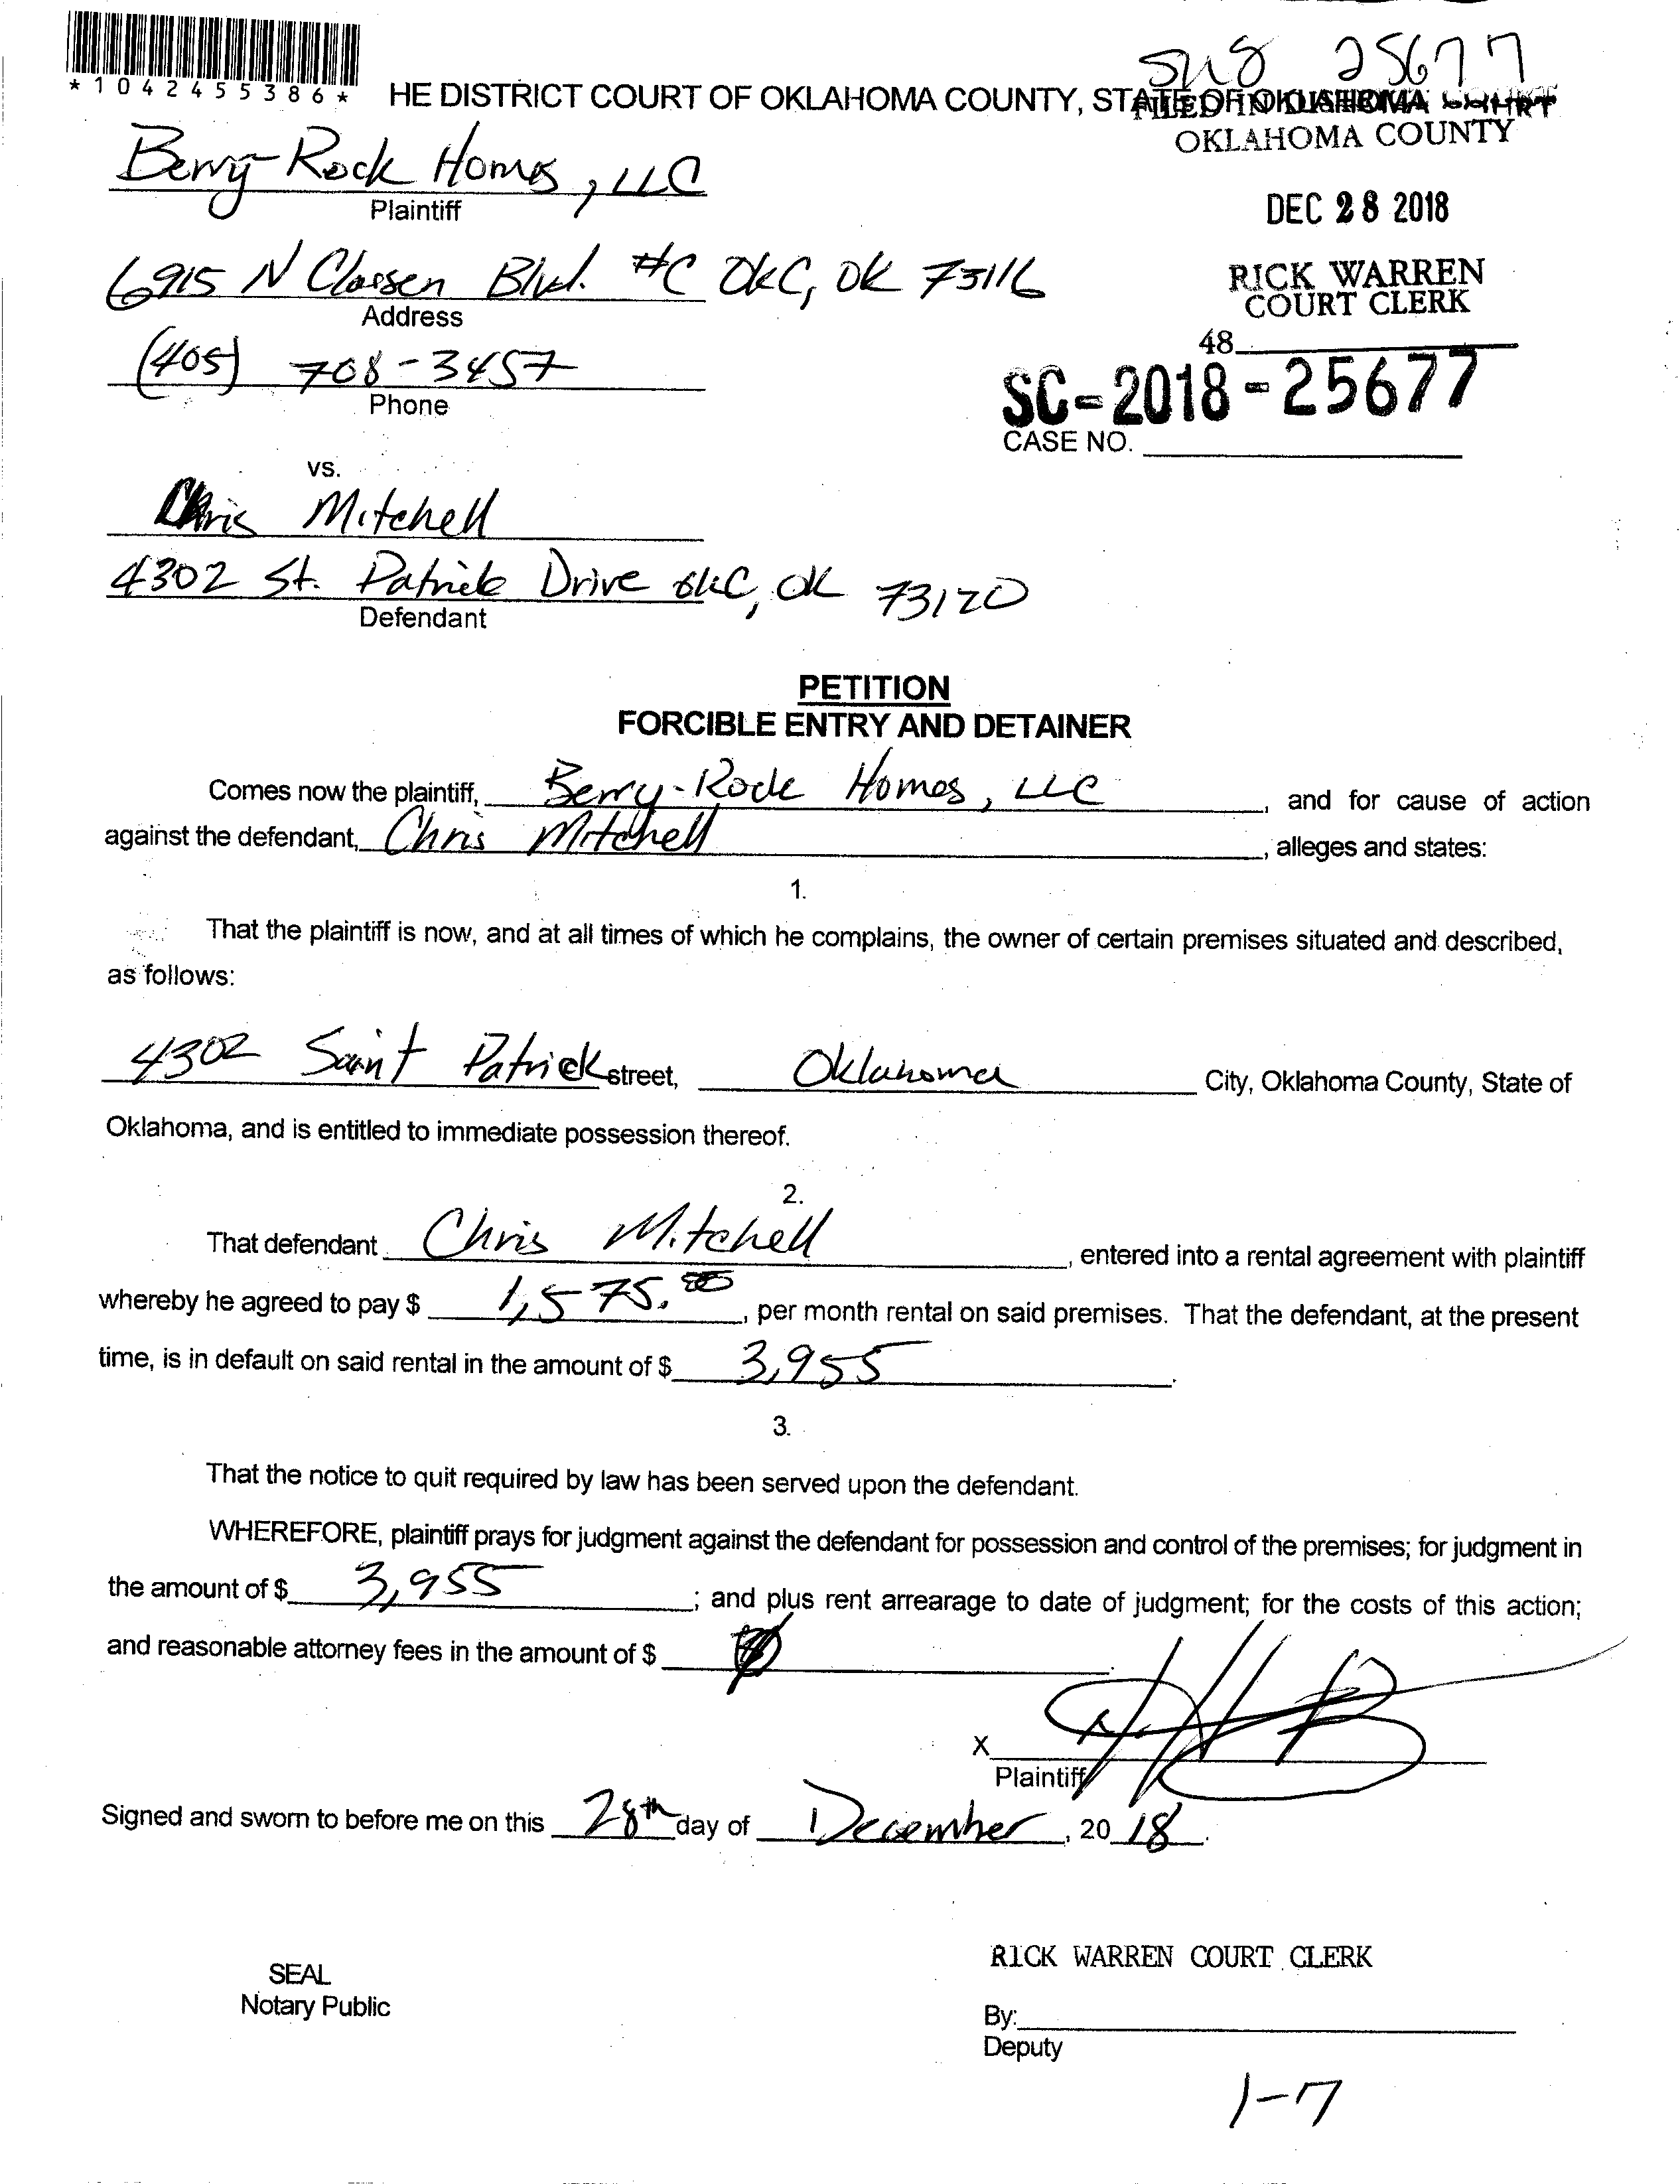 SC18 25677
*1042455386*
HE DISTRICT COURT OF OKLAHOMA COUNTY, STATE OF OKLAHOMA
FILED IN DISTRICT COURT
OKLAHOMA COUNTY
Berry-Rock Homes, LLC
Plaintiff
DEC 28 2018
6915 N Classen Blvd. #C OKC, OK 73116
Address
RICK WARREN
COURT CLERK
48
(405) 708-3457
Phone
SC-2018-25677
CASE NO.
vs.
Chris Mitchell
4302 St. Patrick Drive OKC, OK 73120
Defendant
PETITION
FORCIBLE ENTRY AND DETAINER
Comes now the plaintiff, Berry-Rock Homes, LLC, and for cause of action
against the defendant, Chris Mitchell, alleges and states:
1.
That the plaintiff is now, and at all times of which he complains, the owner of certain premises situated and described,
as follows:
4302 Saint Patrick street, Oklahoma City, Oklahoma County, State of
Oklahoma, and is entitled to immediate possession thereof.
2.
That defendant Chris Mitchell, entered into a rental agreement with plaintiff
whereby he agreed to pay $ 1,575.00, per month rental on said premises. That the defendant, at the present
time, is in default on said rental in the amount of $ 3,955.
3.
That the notice to quit required by law has been served upon the defendant.
WHEREFORE, plaintiff prays for judgment against the defendant for possession and control of the premises; for judgment in
the amount of $ 3,955; and plus rent arrearage to date of judgment; for the costs of this action;
and reasonable attorney fees in the amount of $
X
Plaintiff
Signed and sworn to before me on this 28th day of December, 2018.
RICK WARREN COURT CLERK
SEAL
Notary Public
By:
Deputy
1-7